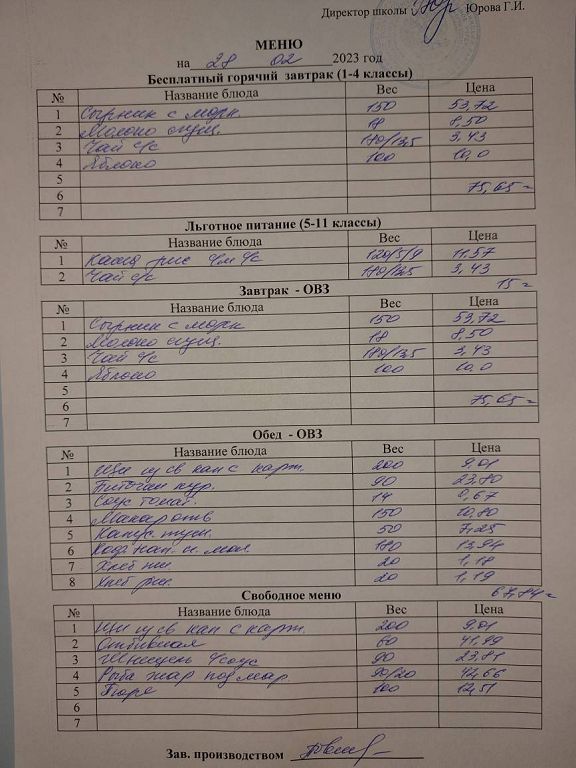 Директор школы Юрова Г.И.
МЕНЮ
на 28 02 2023 год
Бесплатный горячий завтрак (1-4 классы)
№ Название блюда Вес Цена
1 Сырник с морк. 150 53,72
2 Молоко сгущ. 18 8,50
3 Чай с/с 180/13,5 3,43
4 Яблоко 100 10,0
5
6 75,65
7
Льготное питание (5-11 классы)
№ Название блюда Вес Цена
1 Каша рис 120/5/9 11,57
2 Чай с/с 180/13,5 3,43
15
Завтрак - ОВЗ
№ Название блюда Вес Цена
1 Сырник с морк 150 53,72
2 Молоко сгущ. 18 8,50
3 Чай с/с 180/13,5 3,43
4 Яблоко 100 10,0
5
6 75,65
7
Обед - ОВЗ
№ Название блюда Вес Цена
1 Щи из св кап с карт. 200 9,01
2 Биточки кур. 90 23,80
3 Соус томат. 14 0,67
4 Макар отв 150 10,80
5 Капус. туш. 50 7,25
6 Коф. нап. н. мол. 180 13,94
7 Хлеб пш. 20 1,18
8 Хлеб рж. 20 1,19
67,84
Свободное меню
№ Название блюда Вес Цена
1 Щи из св кап с карт. 200 9,01
2 Отбивная 60 41,99
3 Шницель 4соус 90 23,81
4 Рыба жар под мар 90/20 42,66
5 Пюре 100 12,51
6
7
Зав. производством